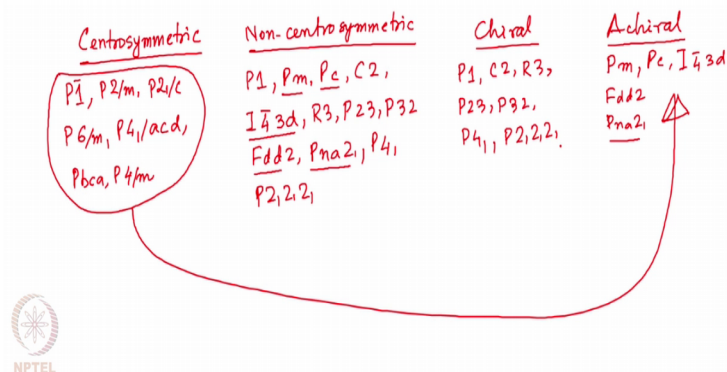 Centrosymmetric
P1̄, P2/m, P2₁/c
P6/m, P4₁/acd,
Pbca, P4/m
Non-centrosymmetric
P1, Pm, Pc, C2,
I4̄3d, R3, P23, P32
Fdd2, Pna2₁, P4₁
P2₁2₁2₁
Chiral
P1, C2, R3,
P23, P32,
P4₁, P2₁2₁2₁.
Achiral
Pm, Pc, I4̄3d
Fdd2
Pna2₁
NPTEL